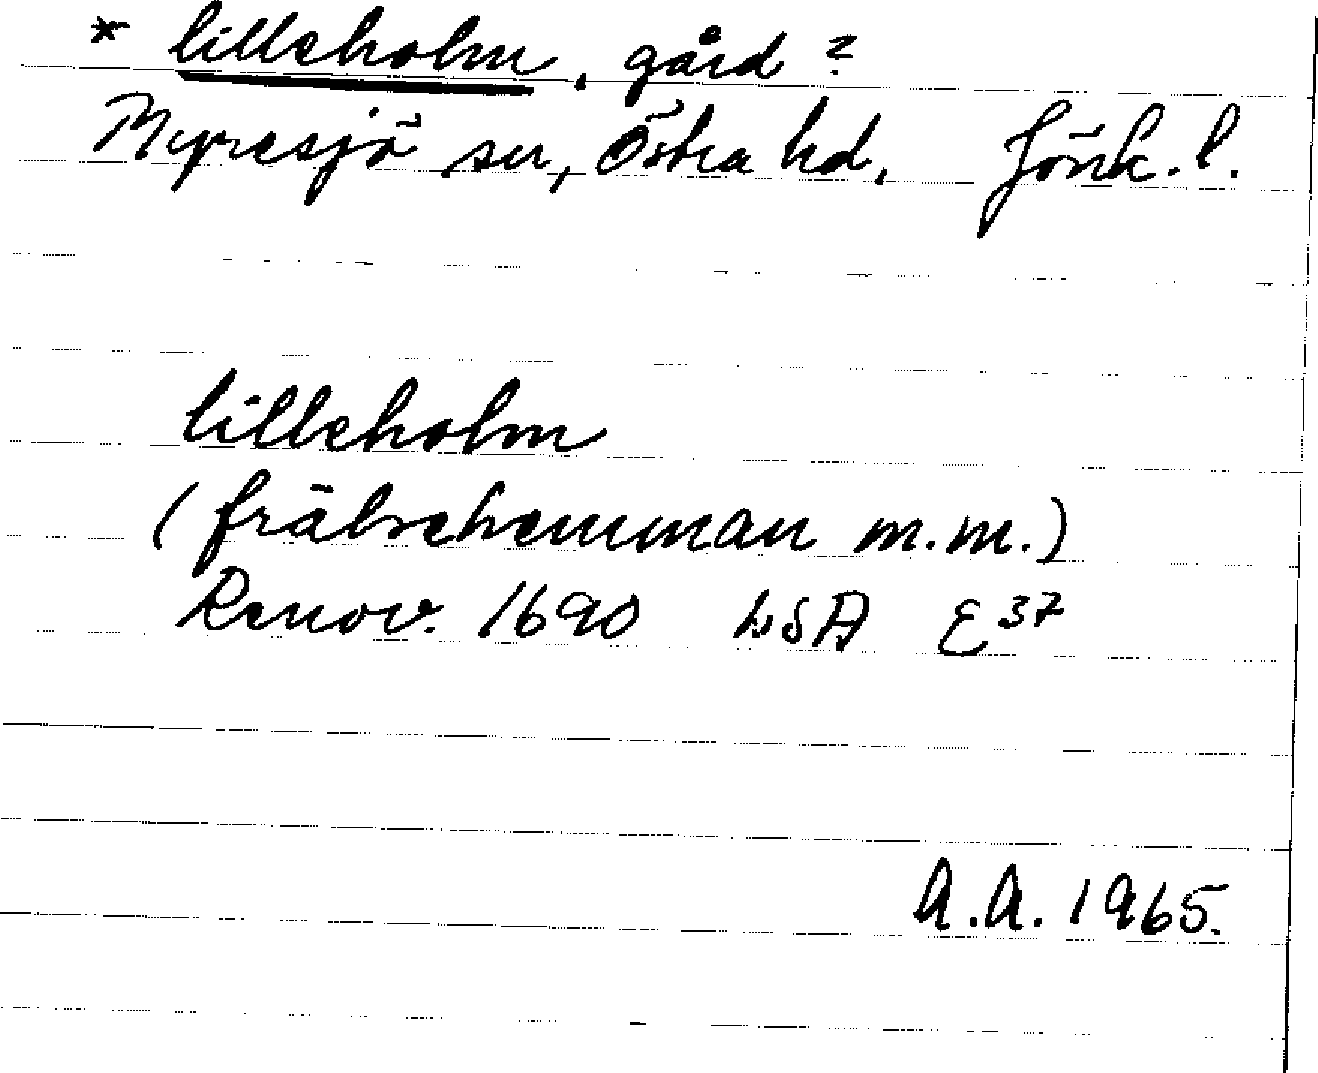 * Lilleholm, gård?
Myresjö sn, Östra hd, Jönk. l.
Lilleholm
(frälsehemman m.m.)
Renov. 1690 LSA E37
A.A. 1965.